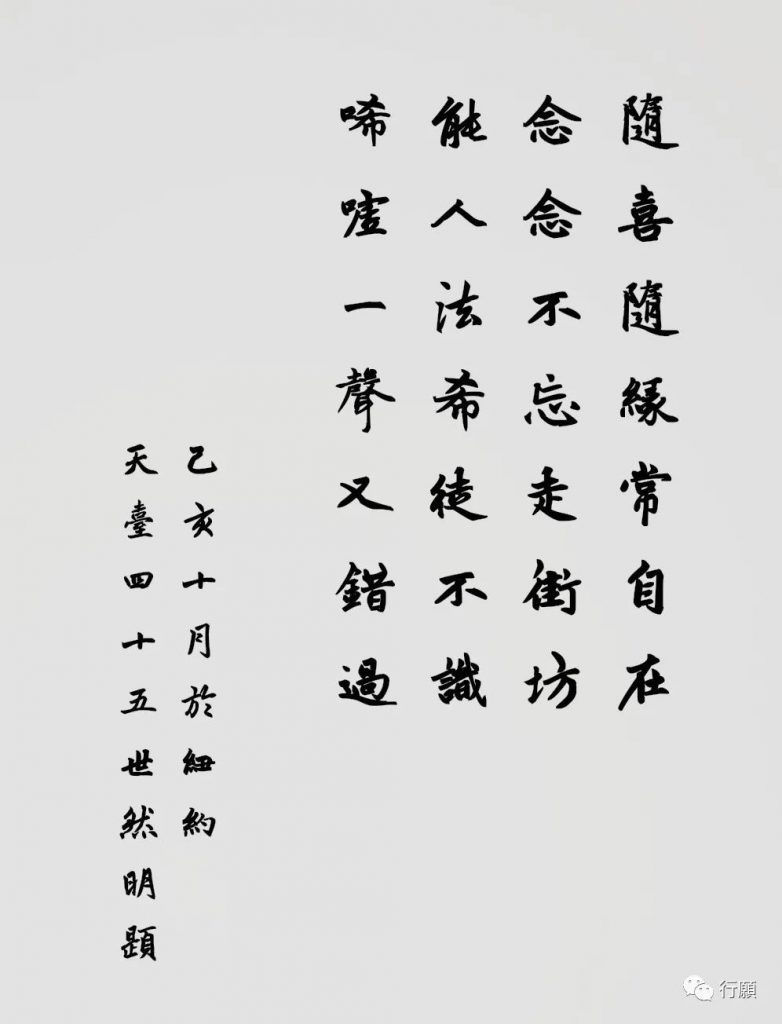 隨喜隨緣常自在
念念不忘走街坊
能人法希徒不識
唏噓一聲又錯過
乙亥十月於紐約
天臺四十五世然明題
行願